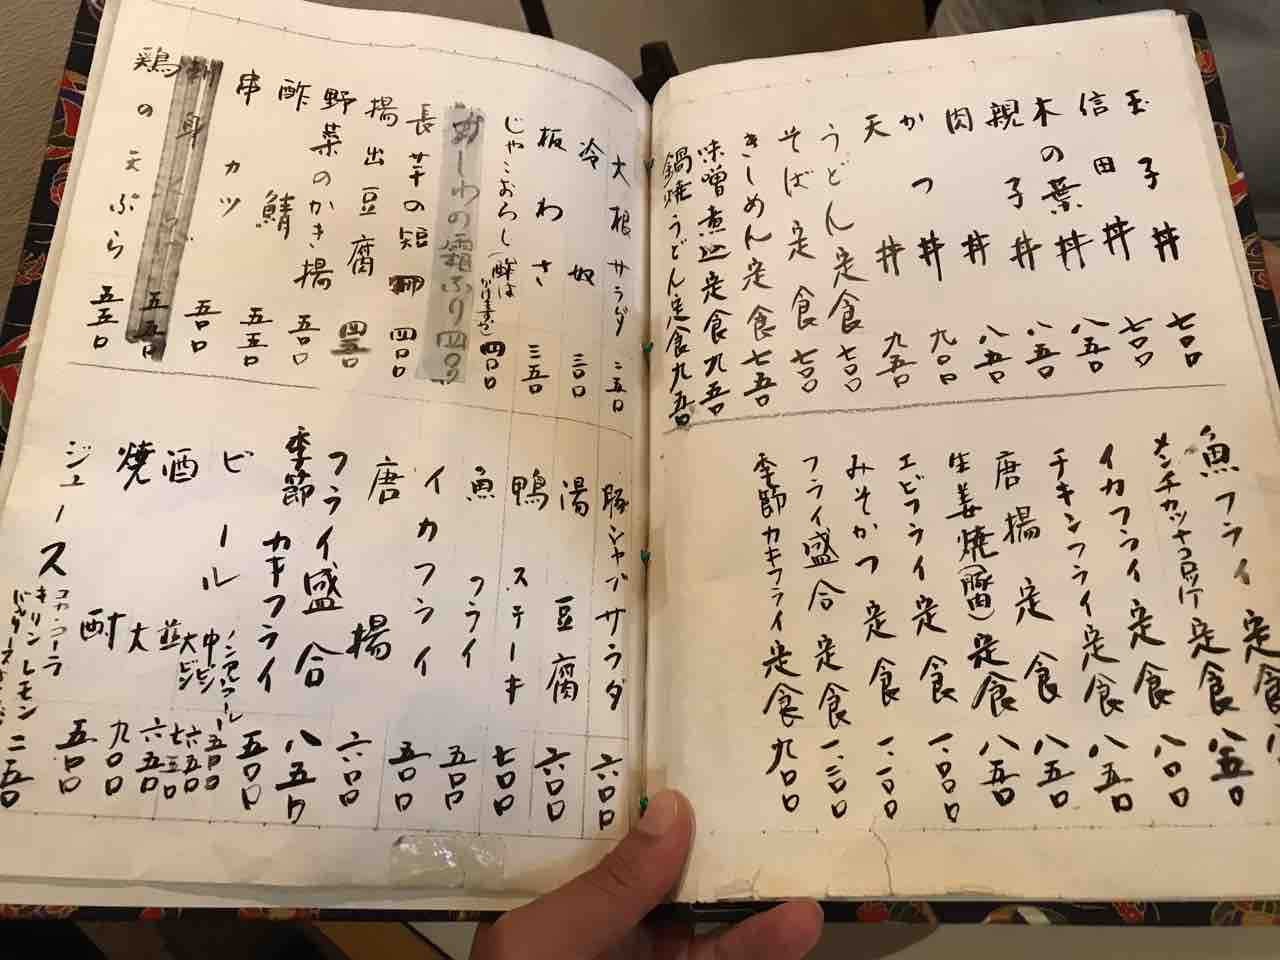 玉子丼 七〇〇
信田丼 七〇〇
木の葉丼 八五〇
親子丼 八五〇
肉丼 八五〇
かつ丼 九〇〇
天丼 九五〇
うどん定食 七〇〇
そば定食 七〇〇
きしめん定食 七五〇
味噌煮込定食 九五〇
鍋焼うどん定食 九五〇
魚フライ定食
メンチカツ+コロッケ定食 八五〇
イカフライ定食 八〇〇
チキンフライ定食 八五〇
唐揚定食 八五〇
生姜焼(豚肉)定食 八五〇
エビフライ定食 一、〇〇〇
みそかつ定食 一、一〇〇
フライ盛合定食 一、三〇〇
季節カキフライ定食 九〇〇
大根サラダ 二五〇
冷奴 三〇〇
板わさ 三五〇
じゃこおろし(酢はかけますか) 四〇〇
かしわの霜ふり 四〇〇
長芋の短冊 四〇〇
揚出豆腐 四五〇
野菜のかき揚 五〇〇
酢鯖 五五〇
串カツ 五〇〇
五五〇
鶏の天ぷら 五五〇
豚シャブサラダ 六〇〇
湯豆腐 六〇〇
鴨ステーキ 七〇〇
魚フライ 五〇〇
イカフライ 五〇〇
唐揚 六〇〇
フライ盛合 八五〇
季節カキフライ 五〇〇
ビール ノンアルコール 五〇〇
中ビン 六五〇
大ビン 七五〇
酒 並 六五〇
大 九〇〇
焼酎 五〇〇
ジュース コカ・コーラ
キリンレモン
二五〇